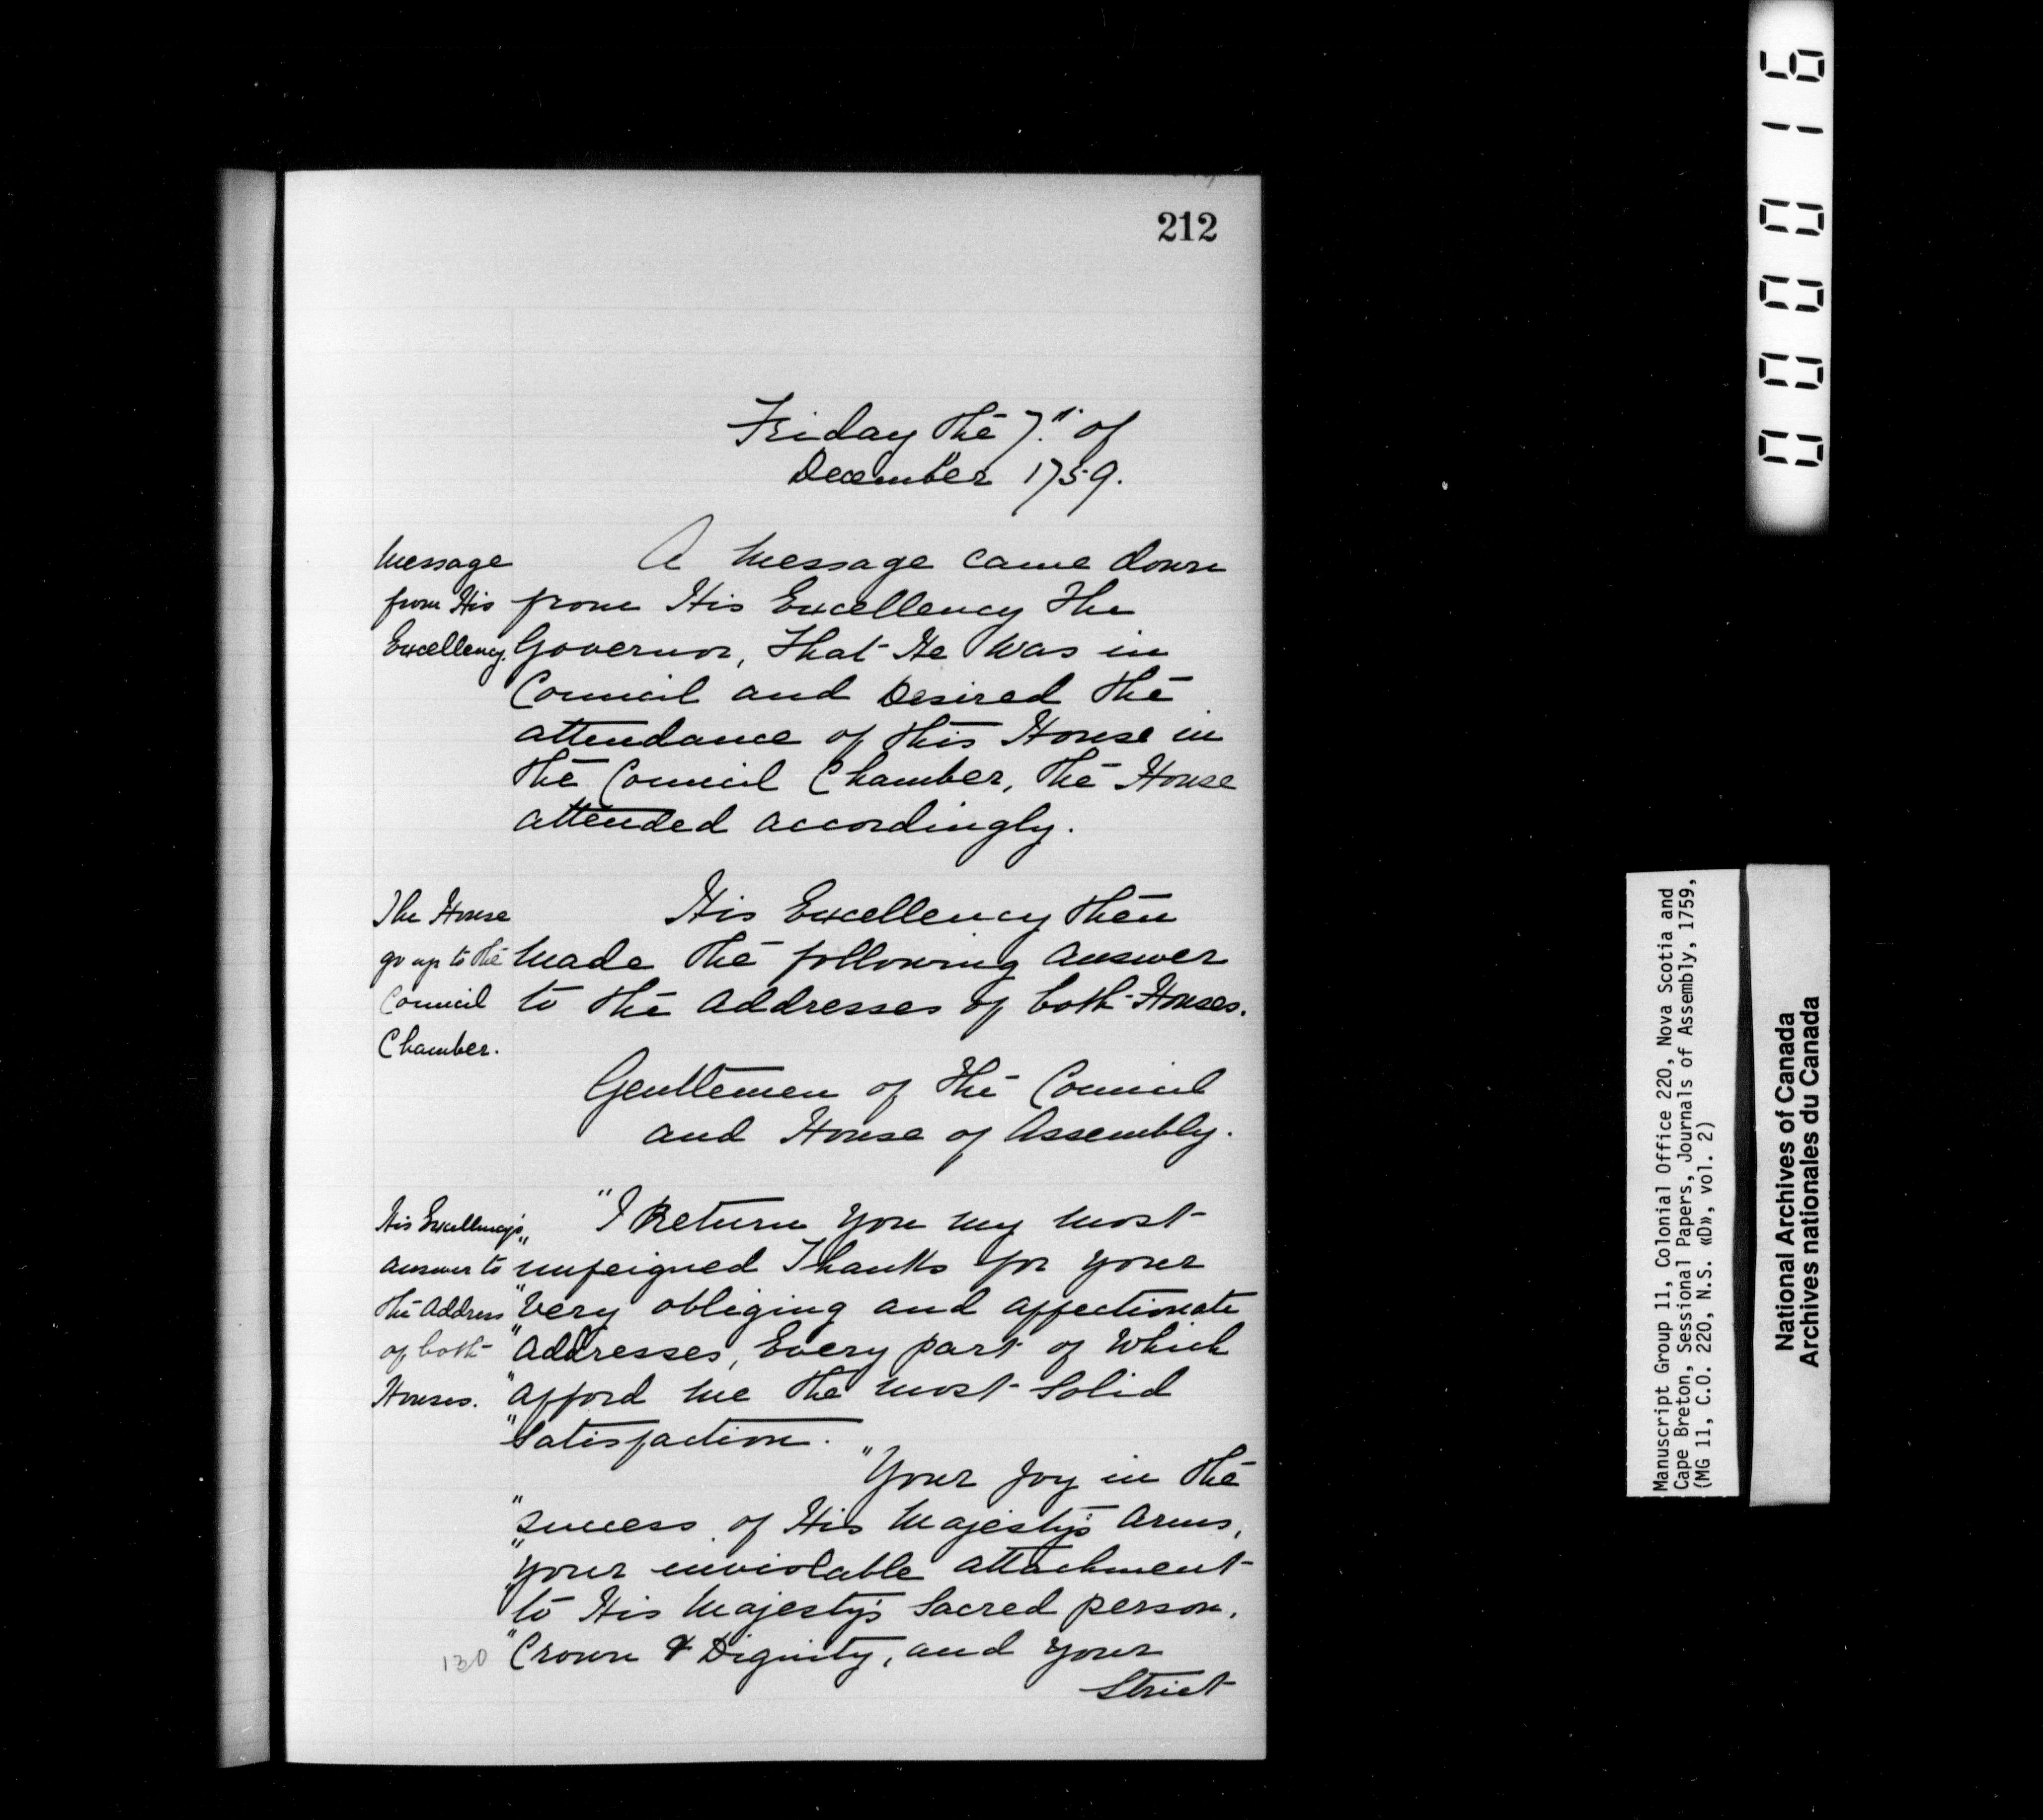 212
Friday the 7.th of
December 1759.
Message
from His
Excellency.
A Message came down
from His Excellency The
Governor, That He Was in
Council and Desired the
attendance of this House in
the Council Chamber, the House
attended accordingly.
The House
go up to the
Council
Chamber.
His Excellency then
Made the following Answer
to the Addresses of both Houses.
Gentlemen of the Council
and House of Assembly.
His Excellency's
answer to
the Address
of both
Houses.
"I Return You my most
"unfeigned Thanks for your
"Very obliging and affectionate
"Addresses, Every part of Which
"afford me the most Solid
"Satisfaction.
"Your Joy in the
"Success of His Majesty's Arms,
"your inviolable attachment
"to His Majesty's Sacred person,
"Crown & Dignity, and your
Strict
130
000016
Manuscript Group 11, Colonial Office 220, Nova Scotia and
Cape Breton, Sessional Papers, Journals of Assembly, 1759,
(MG 11, C.O. 220, N.S. «D», vol. 2)
National Archives of Canada
Archives nationales du Canada